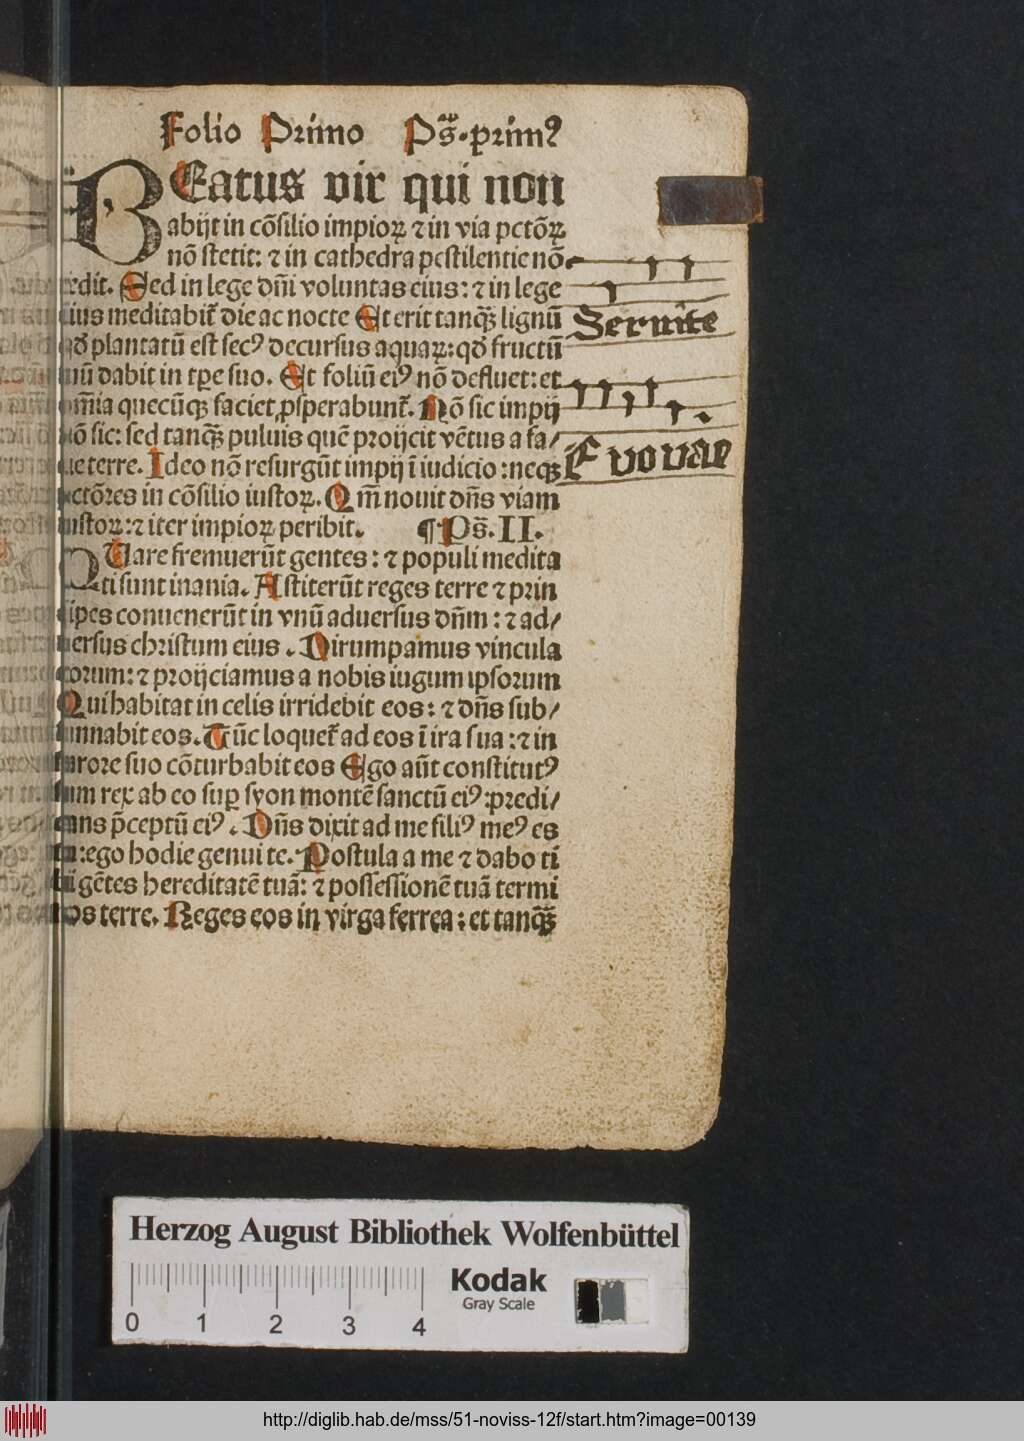 Folio Primo Ps̃. prim⁹
BEatus vir qui non
abijt in cõsilio impioꝝ ⁊ in via pctõꝝ
nõ stetit: ⁊ in cathedra pestilentie nõ
redit. Sed in lege dñi voluntas eius: ⁊ in lege
eius meditabit᷑ die ac nocte Et erit tanqȝ̃ lignũ
Seruite
qđ plantatũ est sec⁹ decursus aquaꝝ: qđ fructũ
suũ dabit in tp̃e suo. Et foliũ ei⁹ nõ defluet: et
om̃ia quecũqȝ faciet ꝓsperabunt᷑. Nõ sic impij
nõ sic: sed tanqȝ̃ puluis quẽ proijcit vẽtus a fa/
Evovae
cie terre. Ideo nõ resurgũt impij ĩ iudicio: neqȝ
pctõres in cõsilio iustoꝝ. Qm̃ nouit dñs viam
iustoꝝ: ⁊ iter impioꝝ peribit. ¶ Ps̃. II.
QUare fremuerũt gentes: ⁊ populi medita
ti sunt inania. Astiterũt reges terre ⁊ prin
cipes conuenerũt in vnũ aduersus dñm: ⁊ ad/
uersus christum eius. Dirumpamus vincula
eorum: ⁊ proijciamus a nobis iugum ipsorum
Qui habitat in celis irridebit eos: ⁊ dñs sub/
sannabit eos. Tũc loquet᷑ ad eos ĩ ira sua: ⁊ in
furore suo cõturbabit eos Ego aũt constitut⁹
sum rex ab eo suꝑ syon montẽ sanctũ ei⁹: predi/
cans p̃ceptũ ei⁹. Dñs dixit ad me fili⁹ me⁹ es
tu: ego hodie genui te. Postula a me ⁊ dabo ti
bi gẽtes hereditatẽ tuã: ⁊ possessionẽ tuã termi
nos terre. Reges eos in virga ferrea: et tanqȝ̃
Herzog August Bibliothek Wolfenbüttel
Kodak
Gray Scale
0 1 2 3 4
http://diglib.hab.de/mss/51-noviss-12f/start.htm?image=00139